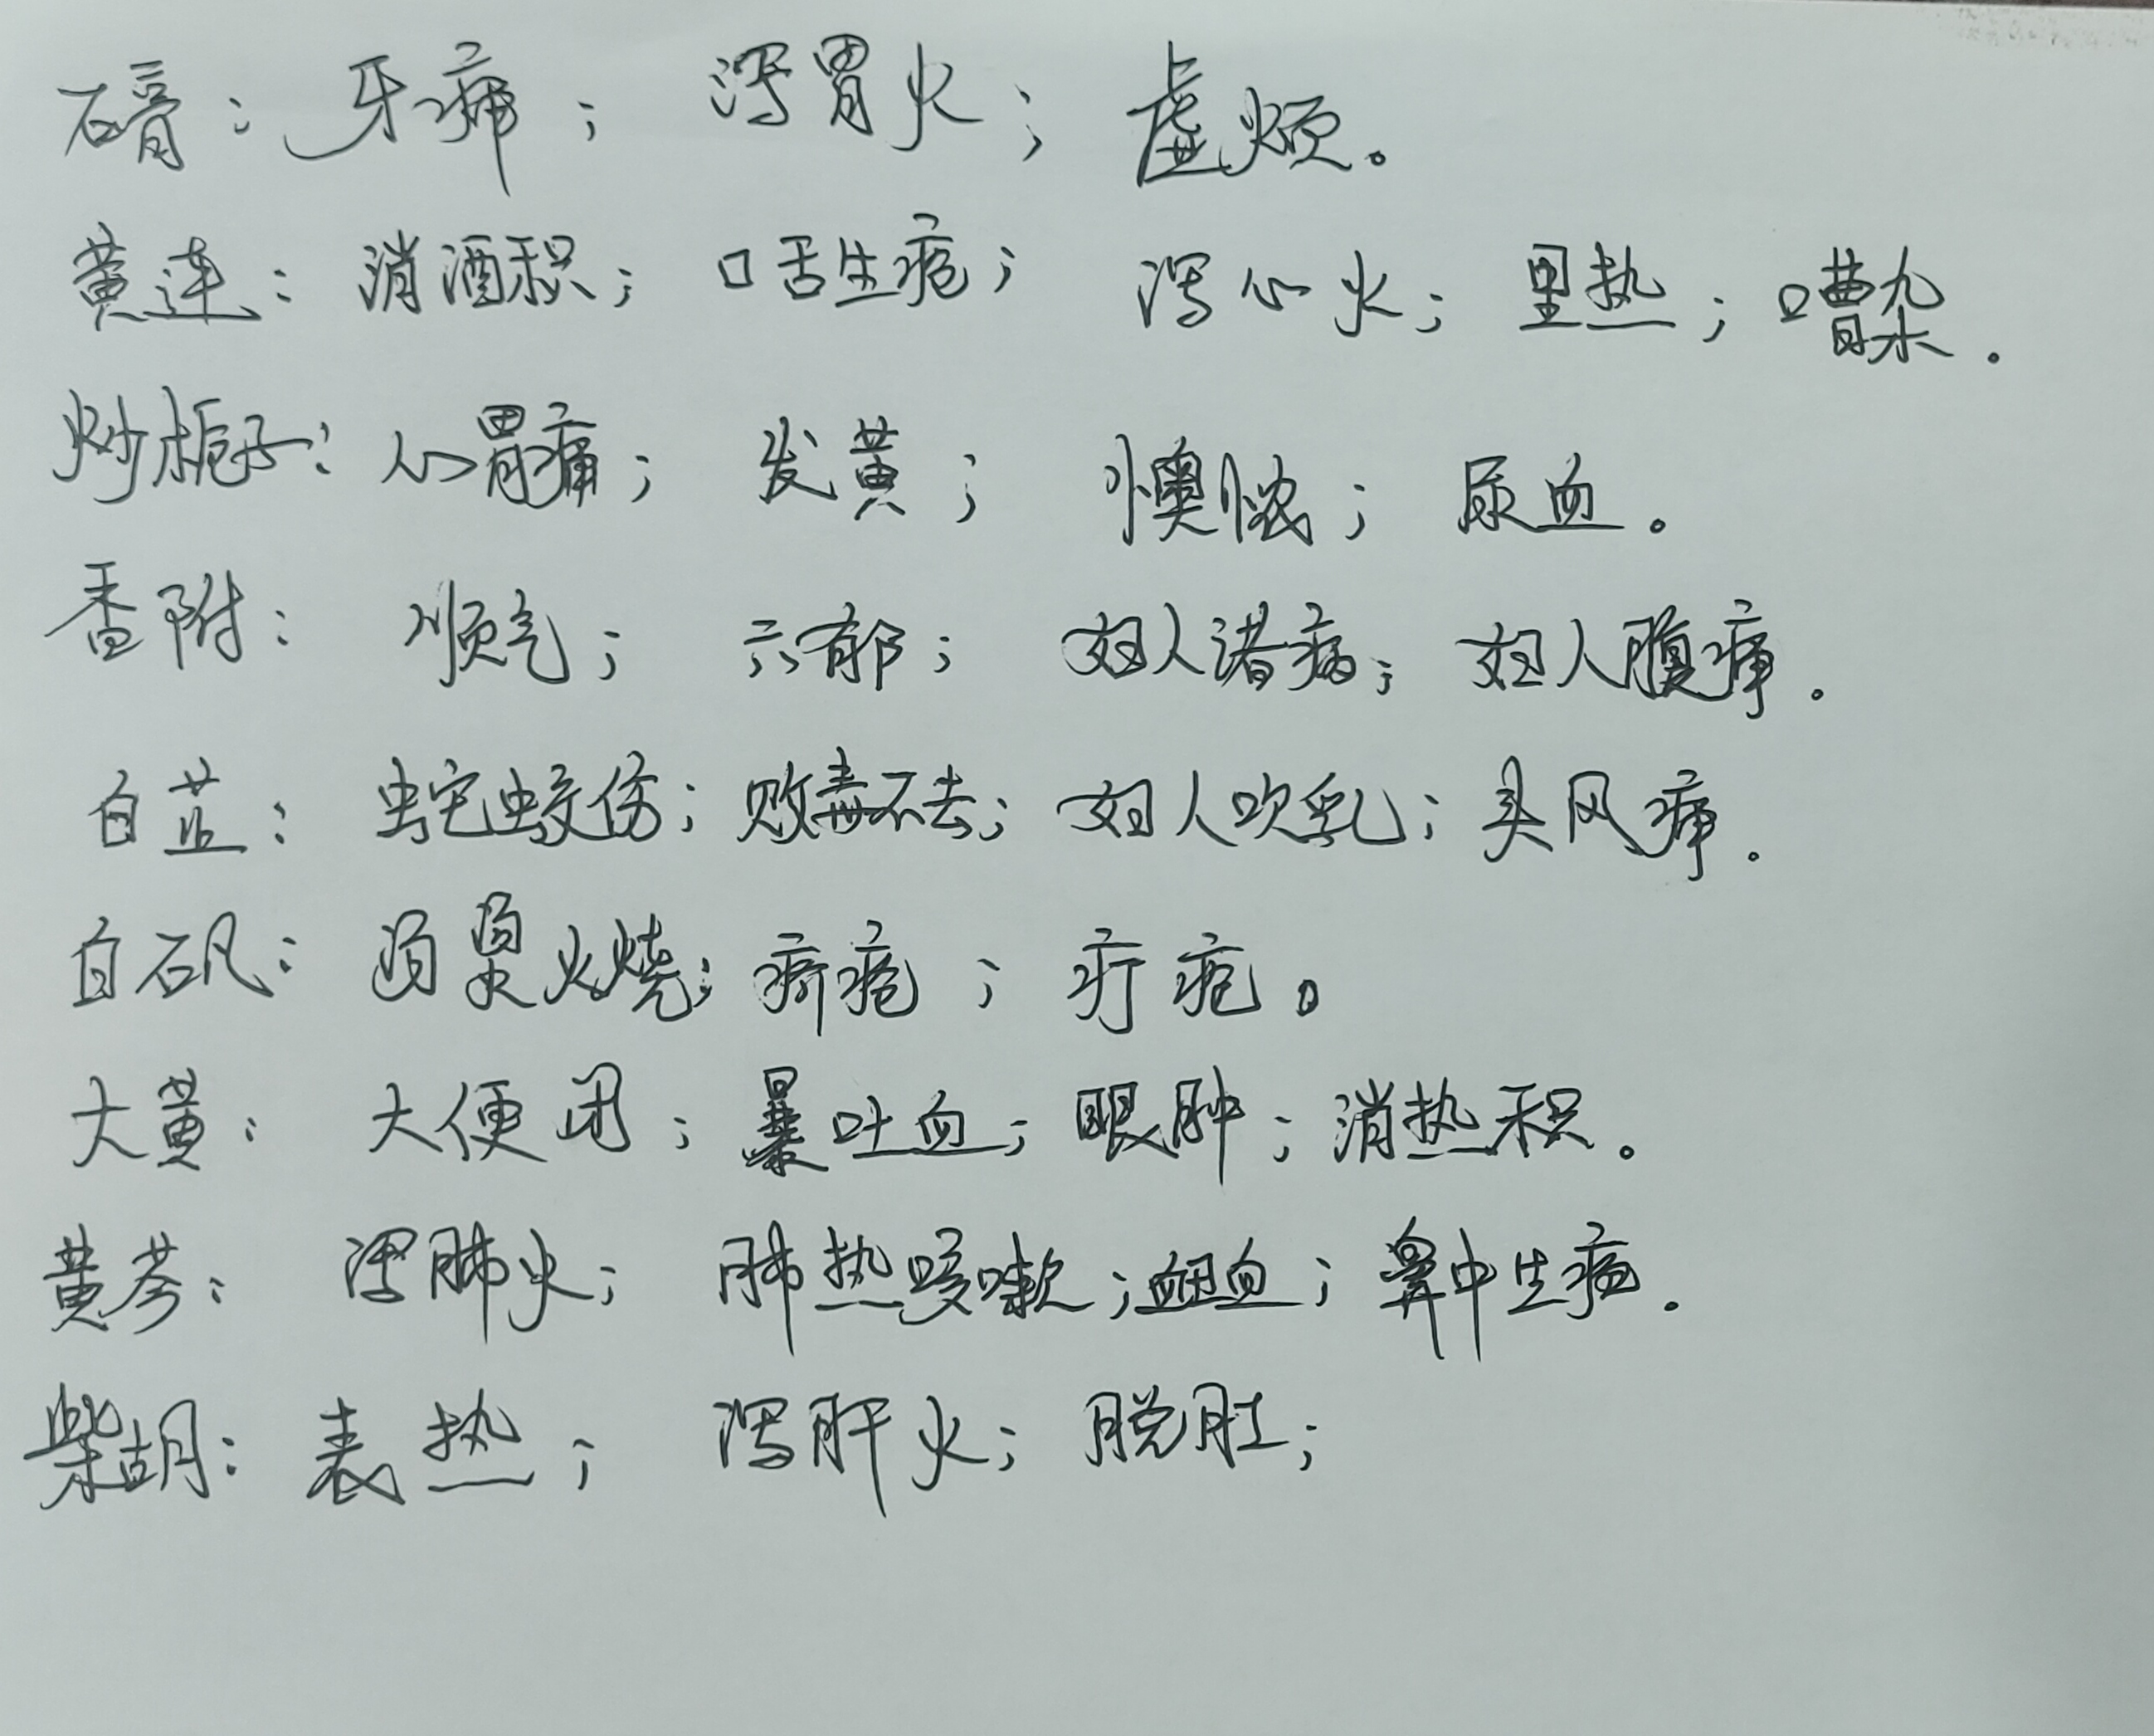 石膏：牙痛；泻胃火；虚烦。
黄连：消酒积；口舌生疮；泻心火；里热；嘈杂.
炒栀子：心胃痛；发黄；懊憹；尿血。
香附：顺气；六郁；妇人诸病；妇人腹痛.
白芷：蛇蛟伤；败毒不去；妇人吹乳；头风痛.
白矾：汤烫火烧；疥疮；疔疮。
大黄：大便闭；暴吐血；眼肿；消热积。
黄芩：泻肺火；肺热咳嗽；衄血；鼻中生疮.
柴胡：表热；泻肝火；脱肛；